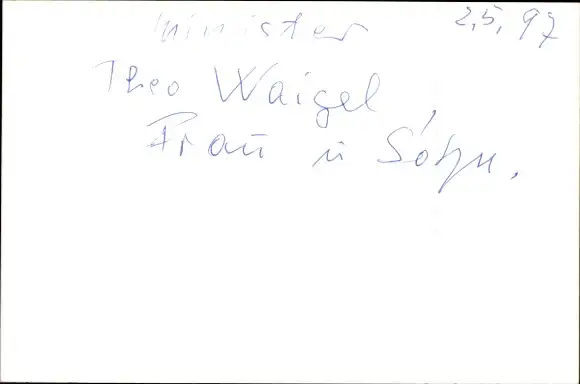 Minister 2,5,97
Theo Waigel,
Frau u Sohn.